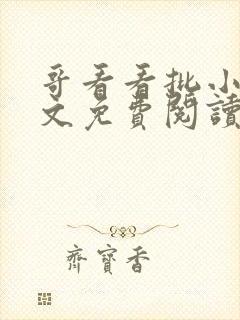 哥看看批小
文免費閱讀
齊寶香